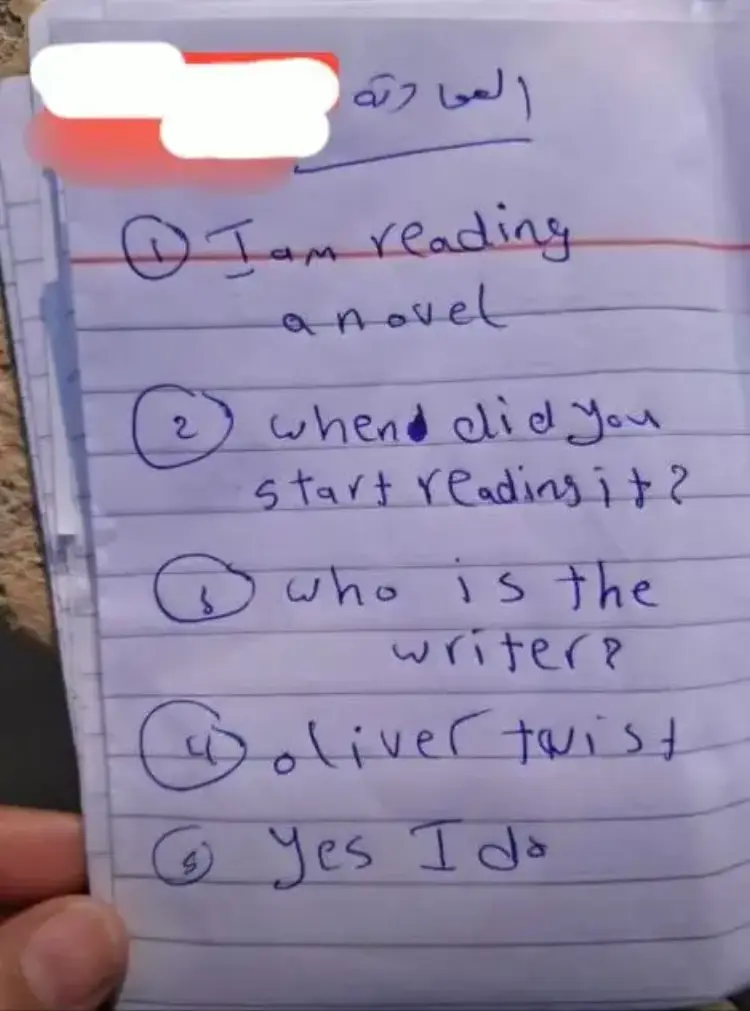 المحادثة
① I am reading
a novel
② when did you
start reading it?
③ who is the
writer?
④ oliver twist
⑤ Yes I do